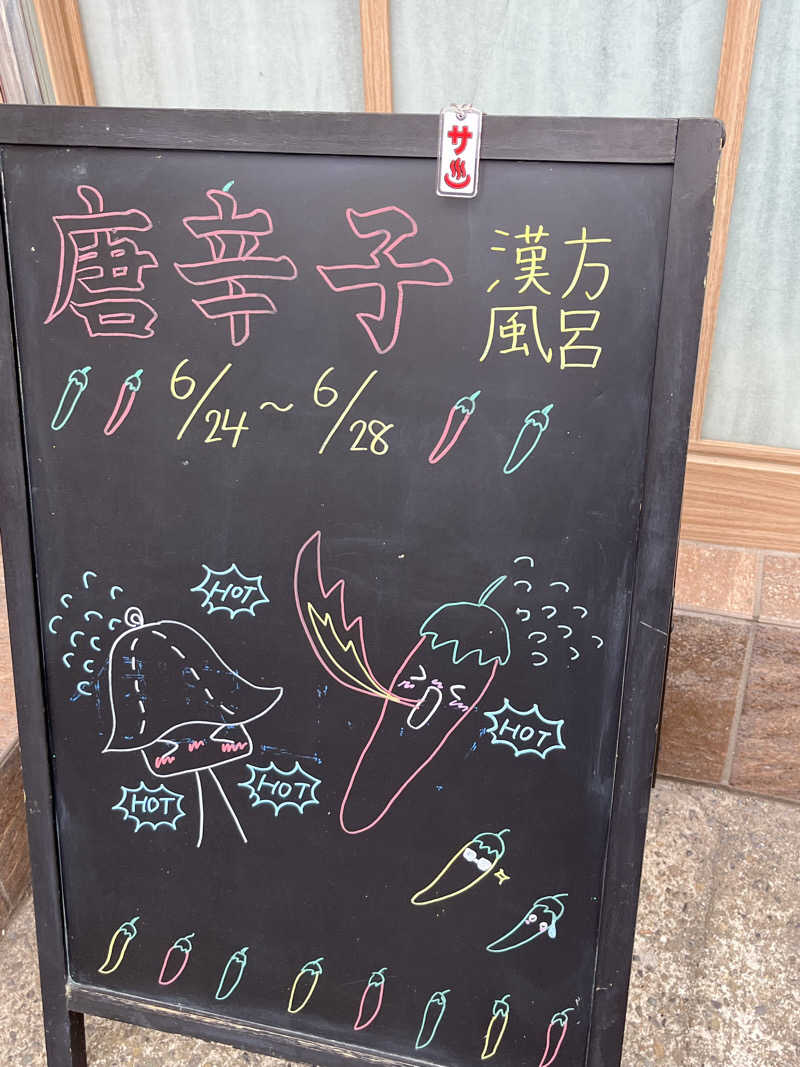 サ
唐辛子
漢方
風呂
6/24～6/28
HOT
HOT
HOT
HOT